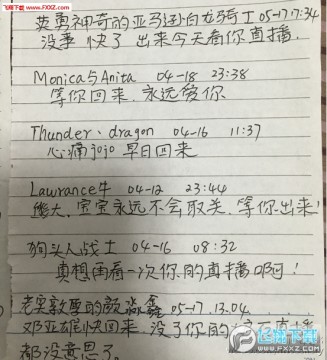 飞翔下载
www.fxxz.com
英勇神奇的亚马逊白龙骑士 05-17 17:34
没事 快了 出来今天看你直播.
Monica与Anita 04-18 23:38
等你回来, 永远爱你
Thunder、dragon 04-16 11:37
心痛jojo 早日回来
Lawrance牛 04-12 23:44
熊大, 宝宝永远不会取关, 等你出来!
狗头人战士 04-16 08:32
真想再看一次你的直播啊!
老实敦厚的颜淼鑫 05-17. 13.04
邓亚雄快回来, 没了你的直播
都没意思了.
飞翔下载
WWW.FXXZ.COM